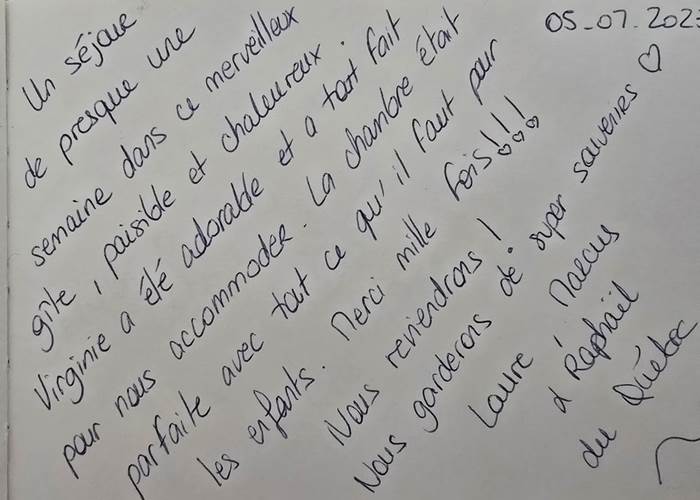 05-07.2023
Un séjour
de presque une
semaine dans ce merveilleux
gîte, paisible et chaleureux.
Virginie a été adorable et a tout fait
pour nous accommoder. La chambre était
parfaite avec tout ce qu'il faut pour
les enfants. Merci mille fois!!!
Nous reviendrons!
Nous garderons de super souvenirs ♡
Laure, Marcus
& Raphaël
du Québec